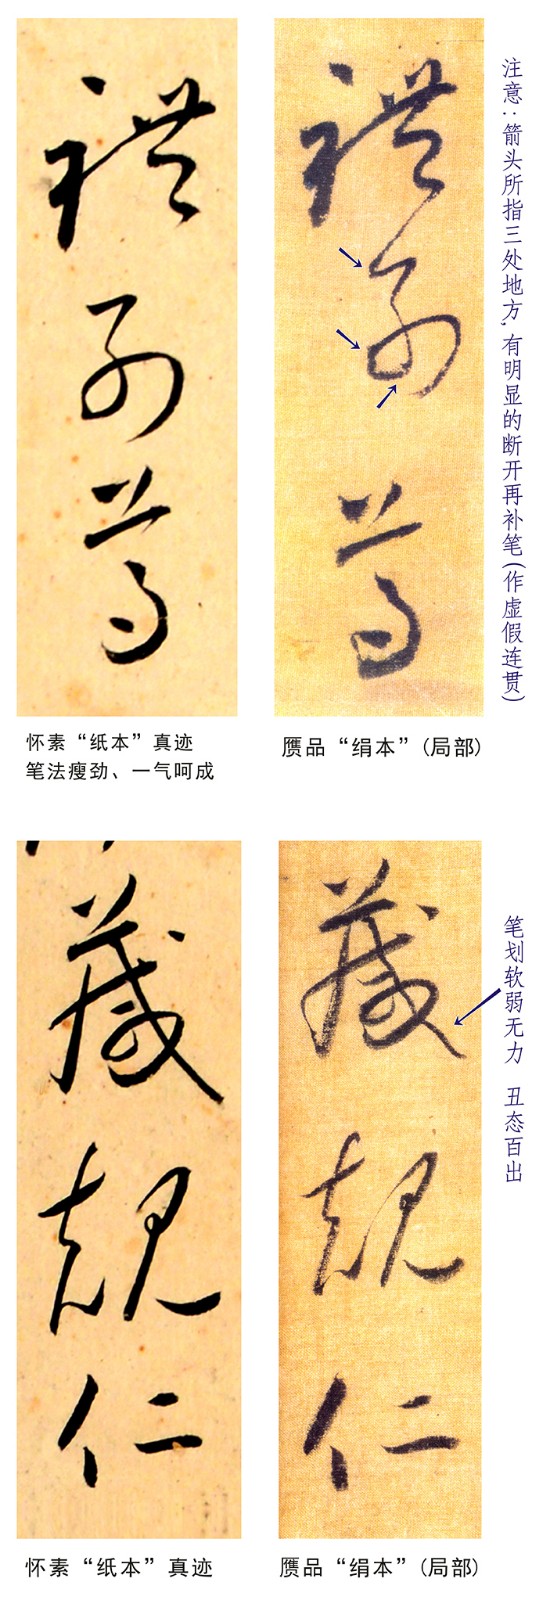 禮别尊
禮别尊
注意：箭头所指三处地方，有明显的断开再补笔(作虚假连贯)
怀素“纸本”真迹
笔法瘦劲、一气呵成
赝品“绢本”(局部)
箴規仁
箴規仁
笔划软弱无力 丑态百出
怀素“纸本”真迹
赝品“绢本”(局部)